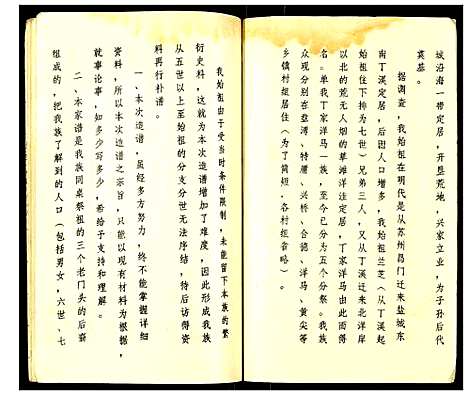 城沿海一带定居，开垦荒地，兴家立业，为子孙后代
奠基。
据调查，我始祖在明代是从苏州昌门迁来盐城东
南丁溪定居，后因人口增多，我始祖兰芝（从丁溪起
始祖住下排为七世）兄弟三人，又从丁溪迁来北洋岸
以北的荒无人烟的草滩洋洼定居，丁家洋马由此而得
名。单我丁家洋马一族，至今已分为五个分祭。我族
众现分别在盘湾、特庸、兴桥、合德、洋马、黄尖等
乡镇村组居住（为了简短，各村组省略）。
我始祖由于受当时条件限制，未能留下本族的繁
衍史料，这就为本次造谱增加了难度，因此形成我族
从五世以上至始祖的分支分世无法序结，待后访得资
料再行补谱。
一、本次造谱，虽经多方努力，终不能掌握详细
资料，所以本次造谱之宗旨，只能以现有材料为根据，
就事论事，知多少写多少，希给于支持和理解。
二、本家谱是我族同桌祭祖的三个老门头的后裔
组成的，把我族了解到的人口（包括男女，六世、七